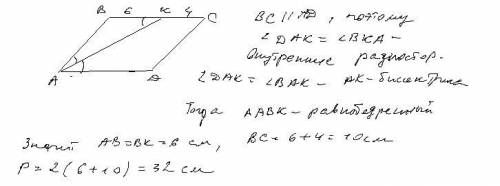 B 6 K 4 C
A D
BC || AD, потому
∠DAK = ∠BKA –
внутренние разностор.
∠DAK = ∠BAK – AK – биссектриса
Тогда △ABK – равнобедренный
Значит AB = BK = 6 см, BC = 6 + 4 = 10 см
P = 2(6 + 10) = 32 см